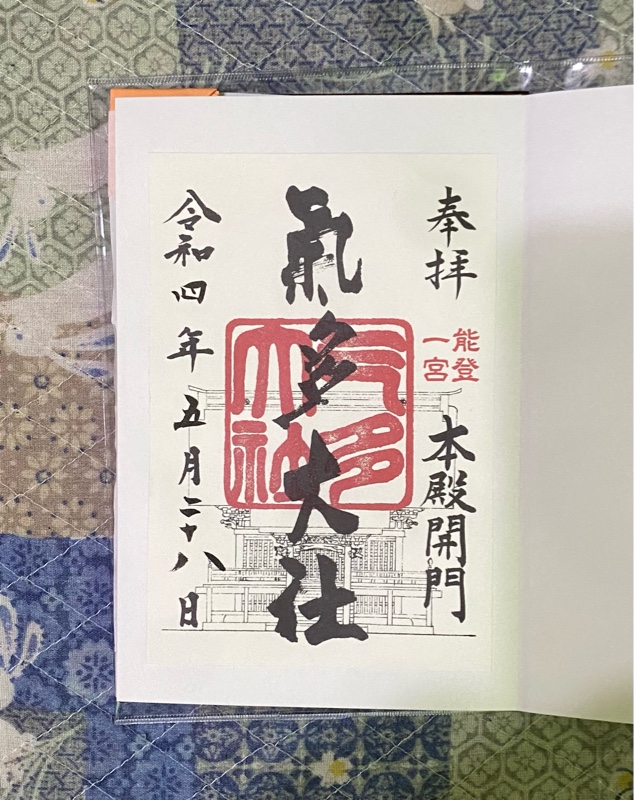 奉拝
能登
一宮
本殿開門
氣多大社
气多
大社
令和四年五月二十八日